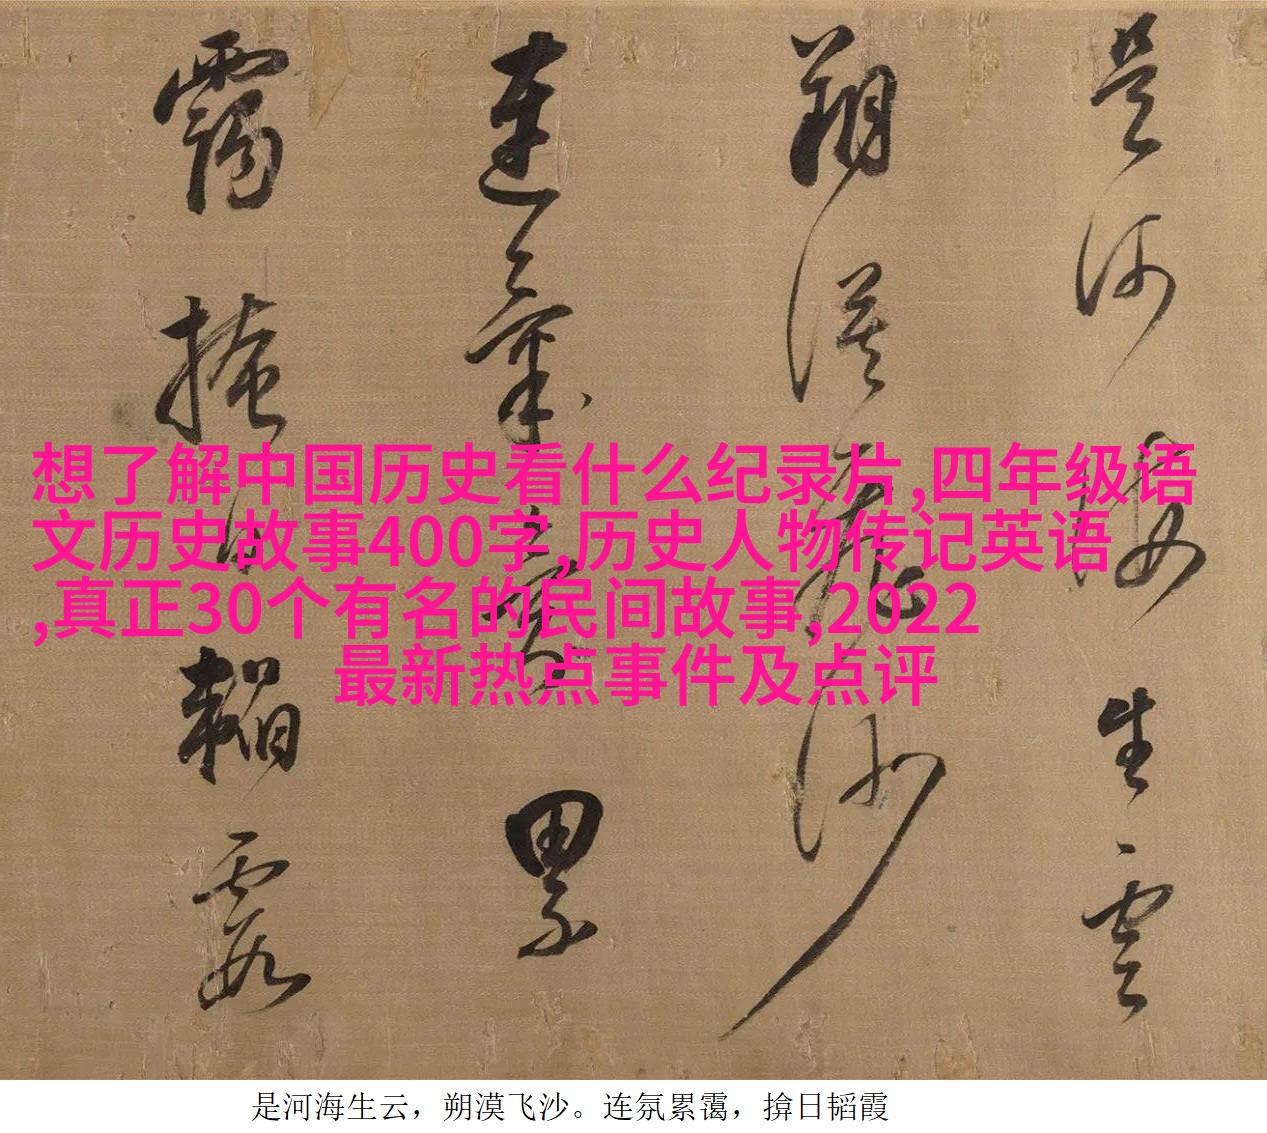 是河海生雲
朔漠飛沙
連氛氣累
靄揜日韜霞
想了解中国历史看什么纪录片,四年级语
文历史故事400字,历史人物传记英语
,真正30个有名的民间故事,2022
最新热点事件及点评
是河海生云，朔漠飞沙。连氛累霭，揜日韬霞